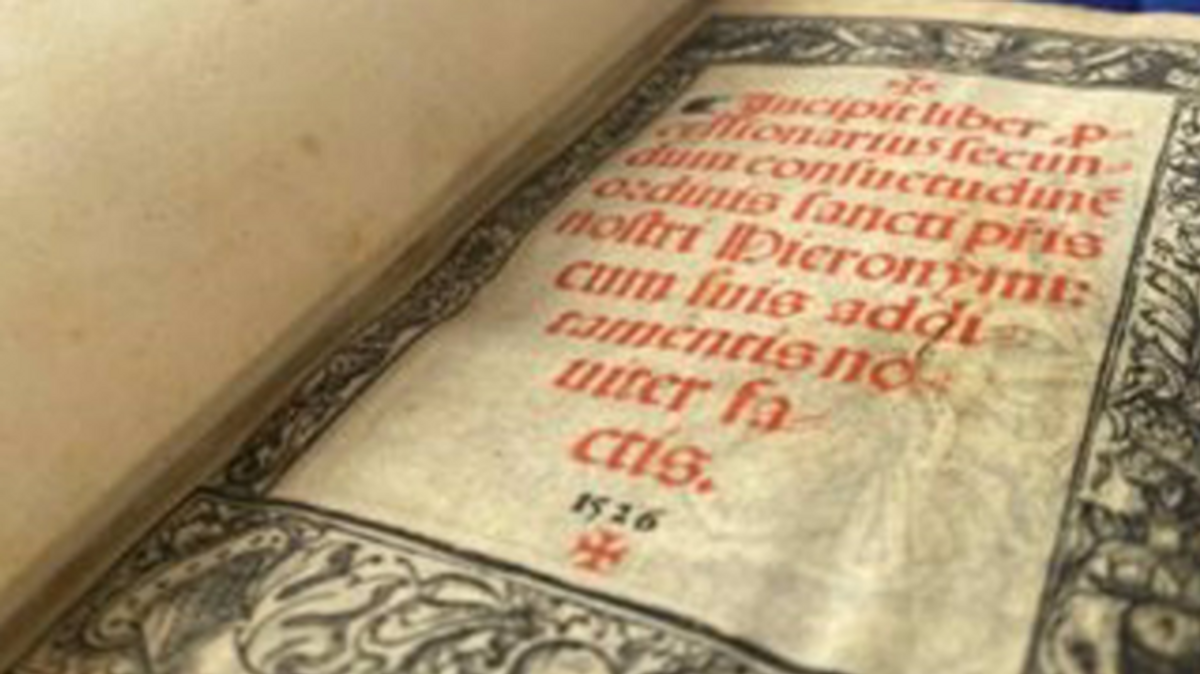 ✠
Incipit liber p̲
cessionarius secun⸗
dum consuetudinẽ
ordinis sancti pr̃is
nostri Hieronymi:
cum suis addi⸗
tamentis no⸗
uiter fa⸗
ctis.
1526
✠